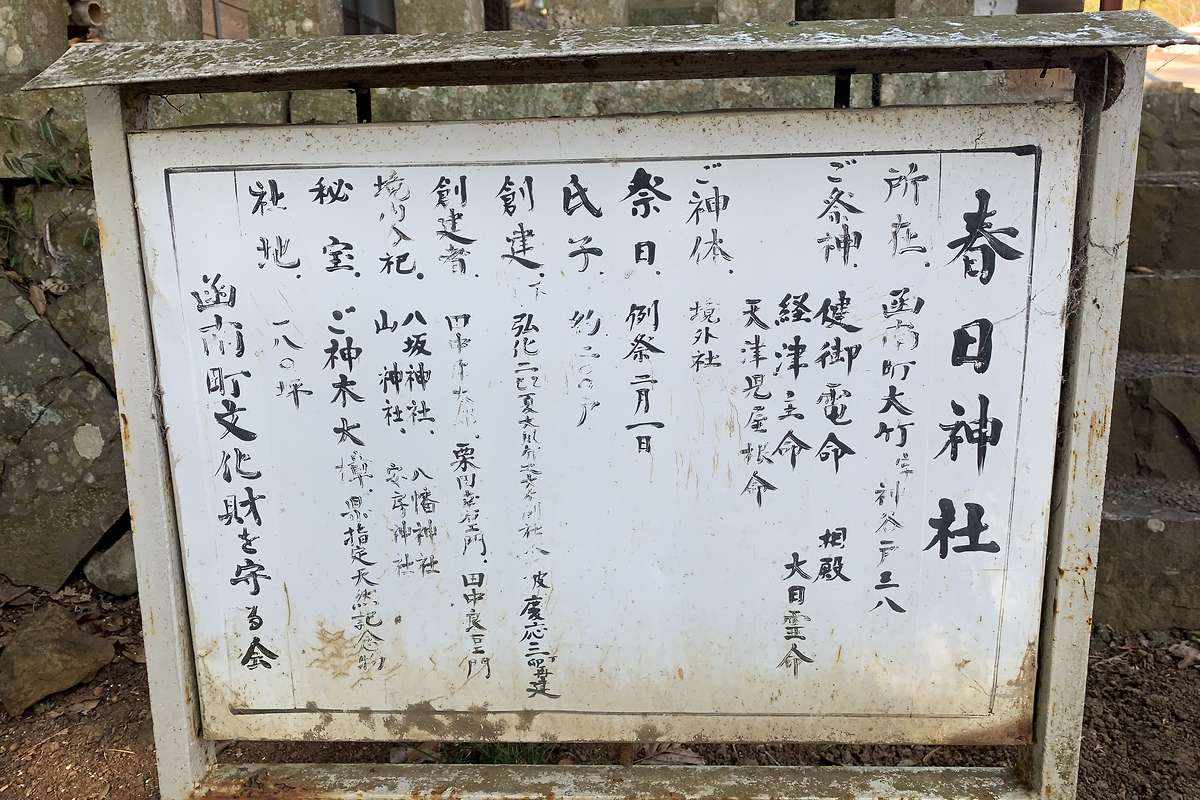 春日神社
所在、函南町大竹字神谷戸三八
ご祭神、健御雷命 相殿
経津主命 大日霊命
天津児屋根命
ご神体、境外社
祭日、例祭二月一日
氏子、約二〇〇戸
創建、弘化二 慶応三卯再建
創建者、田中 栗田 門、田中 門
境内合祀、八坂神社、八幡神社
山神社、安房神社
秘宝、ご神木大樟、県指定天然記念物
社地、一八〇坪
函南町文化財を守る会